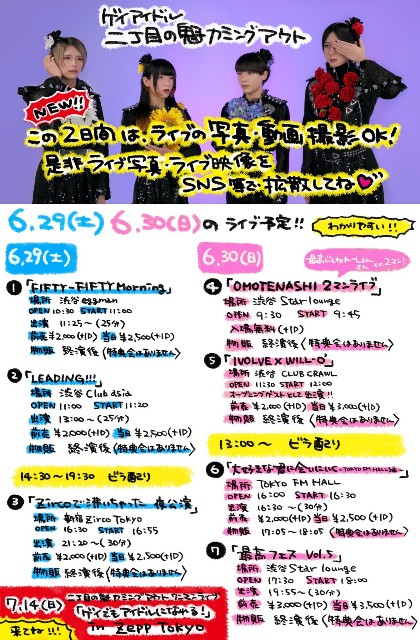 ゲイアイドル
二丁目の魁カミングアウト
NEW!!
この2日間は、ライブの写真・動画撮影OK!
是非ライブ写真・ライブ映像を
SNS等で拡散してね
6.29(土) 6.30(日)のライブ予定!!
わかりやすい!!
6.29(土)
①「FIFTY-FIFTY Morning」
場所 渋谷eggman
OPEN 10:30 START 11:00
出演 11:25〜(25分)
前売¥2,000(+1D) 当日¥2,500(+1D)
物販 終演後〈特典会はありません〉
②「LEADING!!!」
場所 渋谷Club asia
OPEN 11:00 START 11:20
出演 13:00〜(25分)
前売¥2,000(+1D) 当日¥2,500(+1D)
物販 終演後〈特典会はありません〉
14:30〜19:30 ビラ配り
③「Zircoで沸いちゃった 夜公演」
場所 新宿Zirco Tokyo
OPEN 16:30 START 16:55
出演 21:20〜(30分)
前売¥2,000(+1D) 当日¥2,500(+1D)
物販 終演後〈特典会はありません〉
6.30(日)
④「OMOTENASHI 2マンライブ」
場所 渋谷Star lounge
OPEN 9:30 START 9:45
入場無料(+1D)
物販 終演後〈特典会はありません〉
⑤「IVOLVE×WILL-O'」
場所 渋谷CLUB CRAWL
OPEN 11:30 START 12:00
オープニングゲストとして出演!!
前売¥2,000(+1D) 当日¥3,000(+1D)
物販 終演後〈特典会はありません〉
13:00〜 ビラ配り
⑥「大好きな君に会いにいく〜TOKYO FM HALL編〜」
場所 TOKYO FM HALL
OPEN 16:00 START 16:30
出演 16:30〜(30分)
前売¥2,000(+1D) 当日¥2,500(+1D)
物販 17:05〜18:05〈特典会はありません〉
⑦「最高フェス Vol.5」
場所 渋谷Star lounge
OPEN 17:30 START 18:00
出演 19:55〜(30分)
前売¥2,000(+1D) 当日¥3,500(+1D)
物販 終演後〈特典会はありません〉
7.14(日)
来てね!!!
二丁目の魁カミングアウト ワンマンライブ
「ゲイでもアイドルになれる!」
in Zepp Tokyo